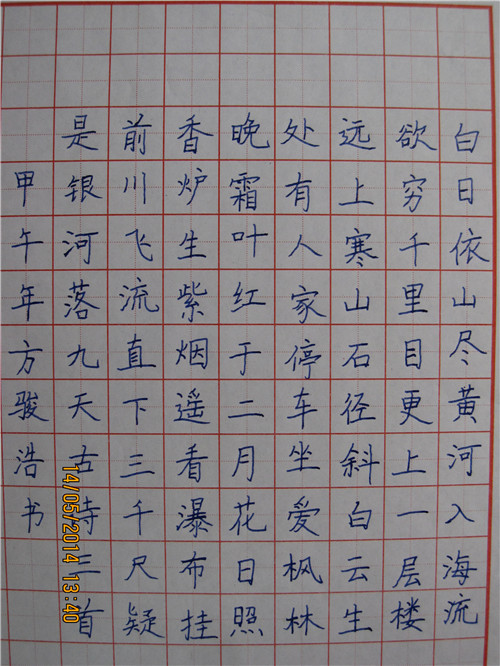 白日依山尽黄河入海流
欲穷千里目更上一层楼
远上寒山石径斜白云生
处有人家停车坐爱枫林
晚霜叶红于二月花日照
香炉生紫烟遥看瀑布挂
前川飞流直下三千尺疑
是银河落九天古诗三首
甲午年方骏浩书
14/05/2014 13:40